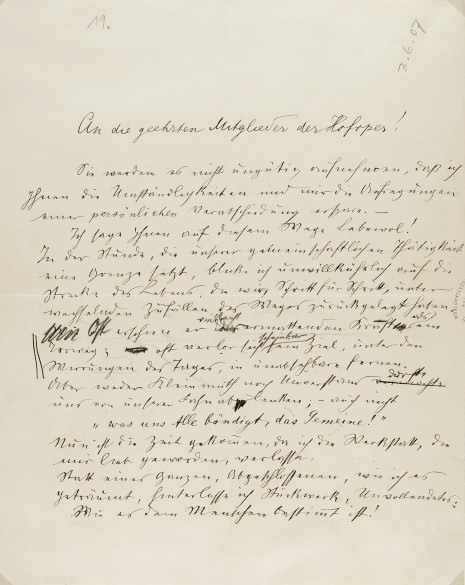 19.
3.6.07
An die geehrten Mitglieder der Hofoper!
Sie werden es nicht ungütig aufnehmen, daß ich
Ihnen die Umständlichkeiten und mir die Aufregungen
einer persönlichen Verabschiedung erspare. –
Ich sage Ihnen auf diesem Wege Lebewol!
In der Stunde, die unserer gemeinschaftlichen Thätigkeit
eine Grenze setzt, blicke ich unwillkührlich auf die
Strecke des Lebens, die wir Schritt für Schritt, unter
wechselnden Zufällen des Weges zurückgelegt haben
Oft erschien er den ermattenden Kräften als ein
oft verlor sich scheinbar sein Ziel, unter den
Wirrungen des Tages, in unabsehbare Fernen.
Aber weder Kleinmuth noch Unverstand durfte
uns von unserer Bahn ablenken; – auch nicht
„was uns Alle bändigt, das Gemeine!"
Nun ist die Zeit gekommen, da ich die Werkstatt, die
mir lieb geworden, verlasse.
Statt eines Ganzen, Abgeschlossenen, wie ich es
geträumt, hinterlasse ich Stückwerk, Unvollendetes:
Wie es dem Menschen bestimmt ist!